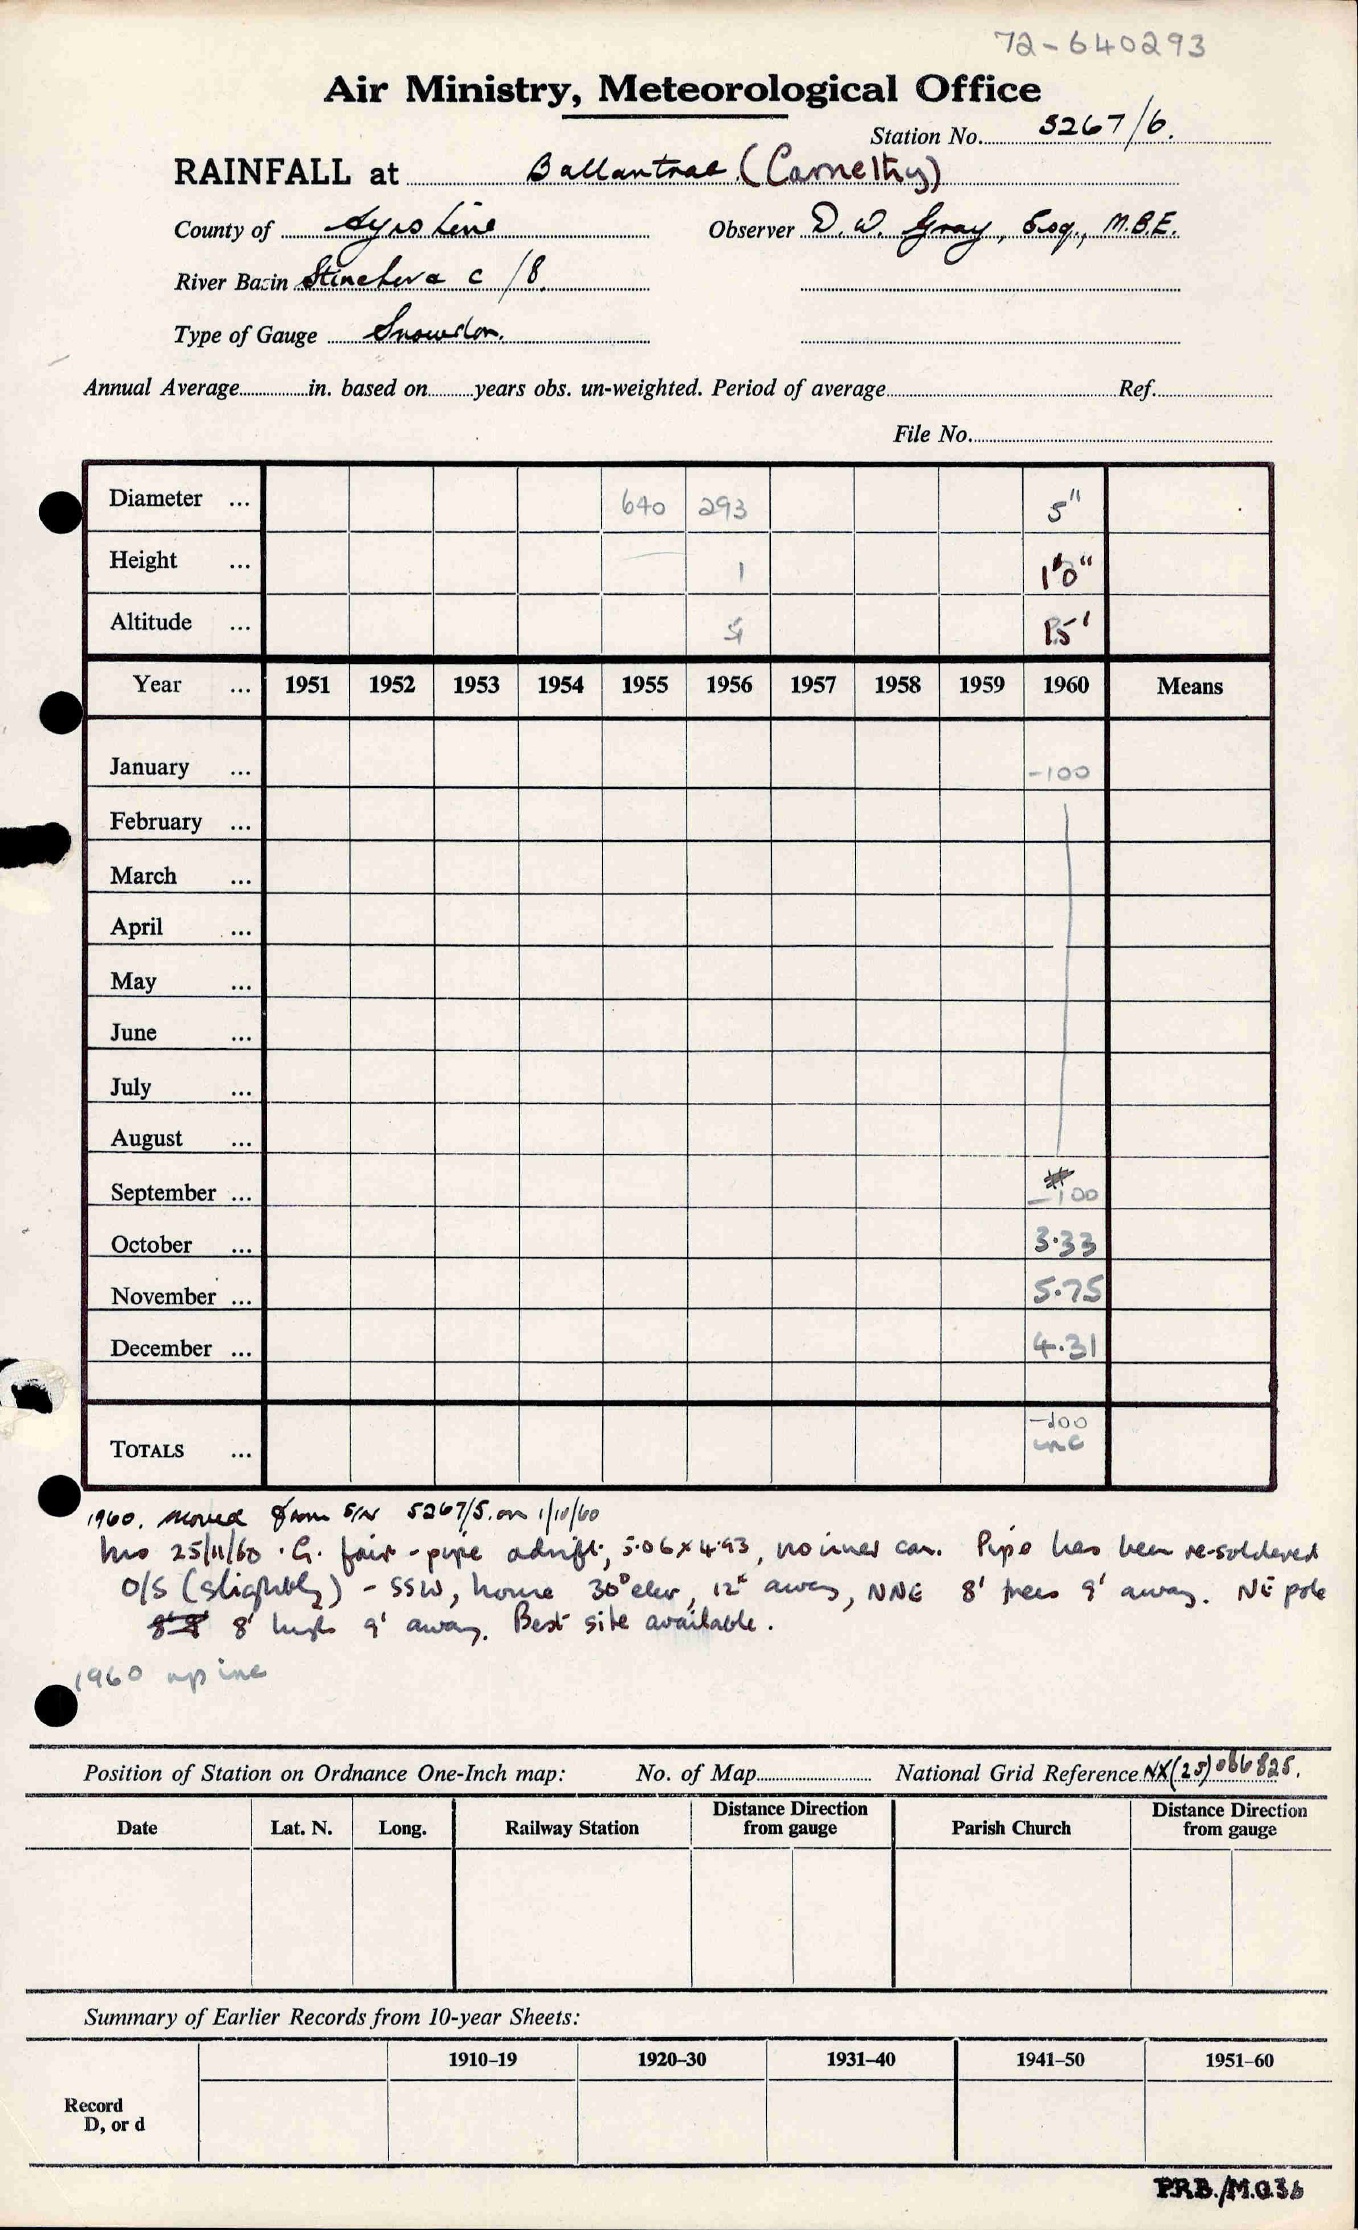 72-640293
Air Ministry, Meteorological Office
Station No. 5267/6.
RAINFALL at Ballantrae (Carnelthy)
County of Ayrshire Observer D. W. Gray, Esq., M.B.E.
River Basin Stinchar & c /8.
Type of Gauge Snowdon.
Annual Average in. based on years obs. un-weighted. Period of average Ref.
File No.
Diameter ... 640 293 5"
Height ... 1 1'0"
Altitude ... 15'
Year ... 1951 1952 1953 1954 1955 1956 1957 1958 1959 1960 Means
January ... -100
February ...
March ...
April ...
May ...
June ...
July ...
August ...
September ... -100
October ... 3.33
November ... 5.75
December ... 4.31
TOTALS ... -100
inc
1960. Moved from S/N 5267/5. on 1/10/60
25/11/60 . G. fair - pipe adrift, 5.06 x 4.93, no inner can. Pipe has been re-soldered
O/S (slightly) - SSW, house 30° elev, 12' away, NNE 8' trees 9' away. NE pole
8' high 9' away. Best site available.
1960 inc
Position of Station on Ordnance One-Inch map: No. of Map National Grid Reference NX(25)086825.
Date Lat. N. Long. Railway Station Distance Direction from gauge Parish Church Distance Direction from gauge
Summary of Earlier Records from 10-year Sheets:
1910–19 1920–30 1931–40 1941–50 1951–60
Record
D, or d
P.R.B./M.O.36